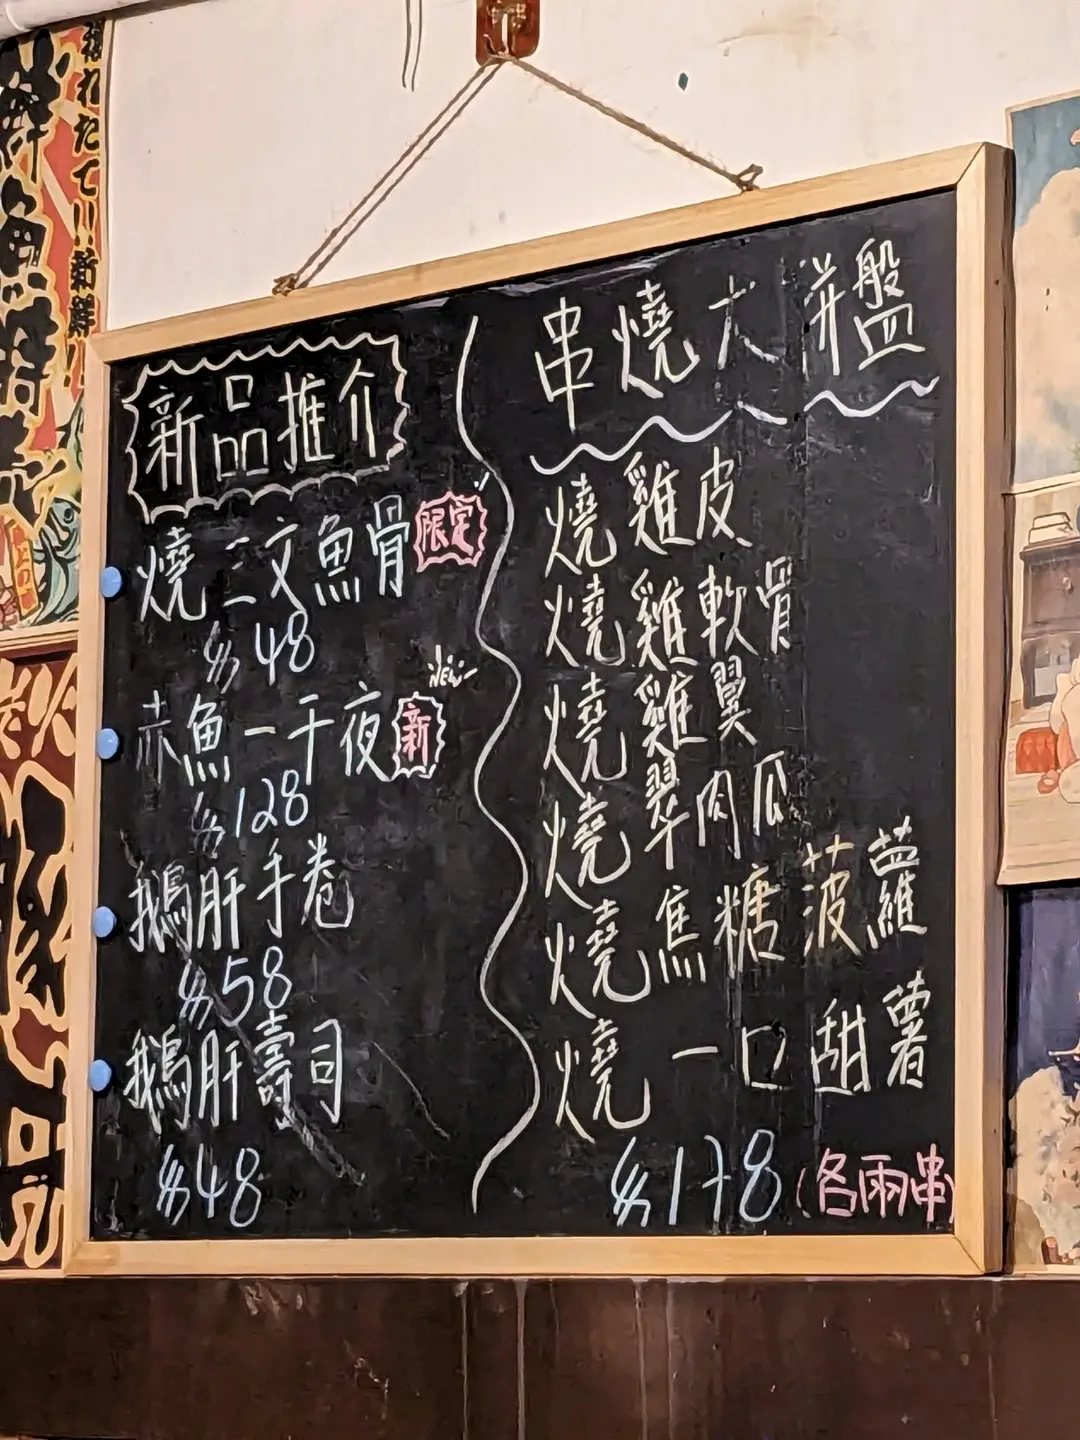 新品推介
燒三文魚骨 限定
$48
NEW
赤魚一干夜 新
$128
鵝肝手卷
$58
鵝肝壽司
$48
串燒大拼盤
燒雞皮
燒雞軟骨
燒雞翼
燒翠肉瓜
燒焦糖菠蘿
燒一口甜薯
$178 (各兩串)
獲れたて!!新鮮!